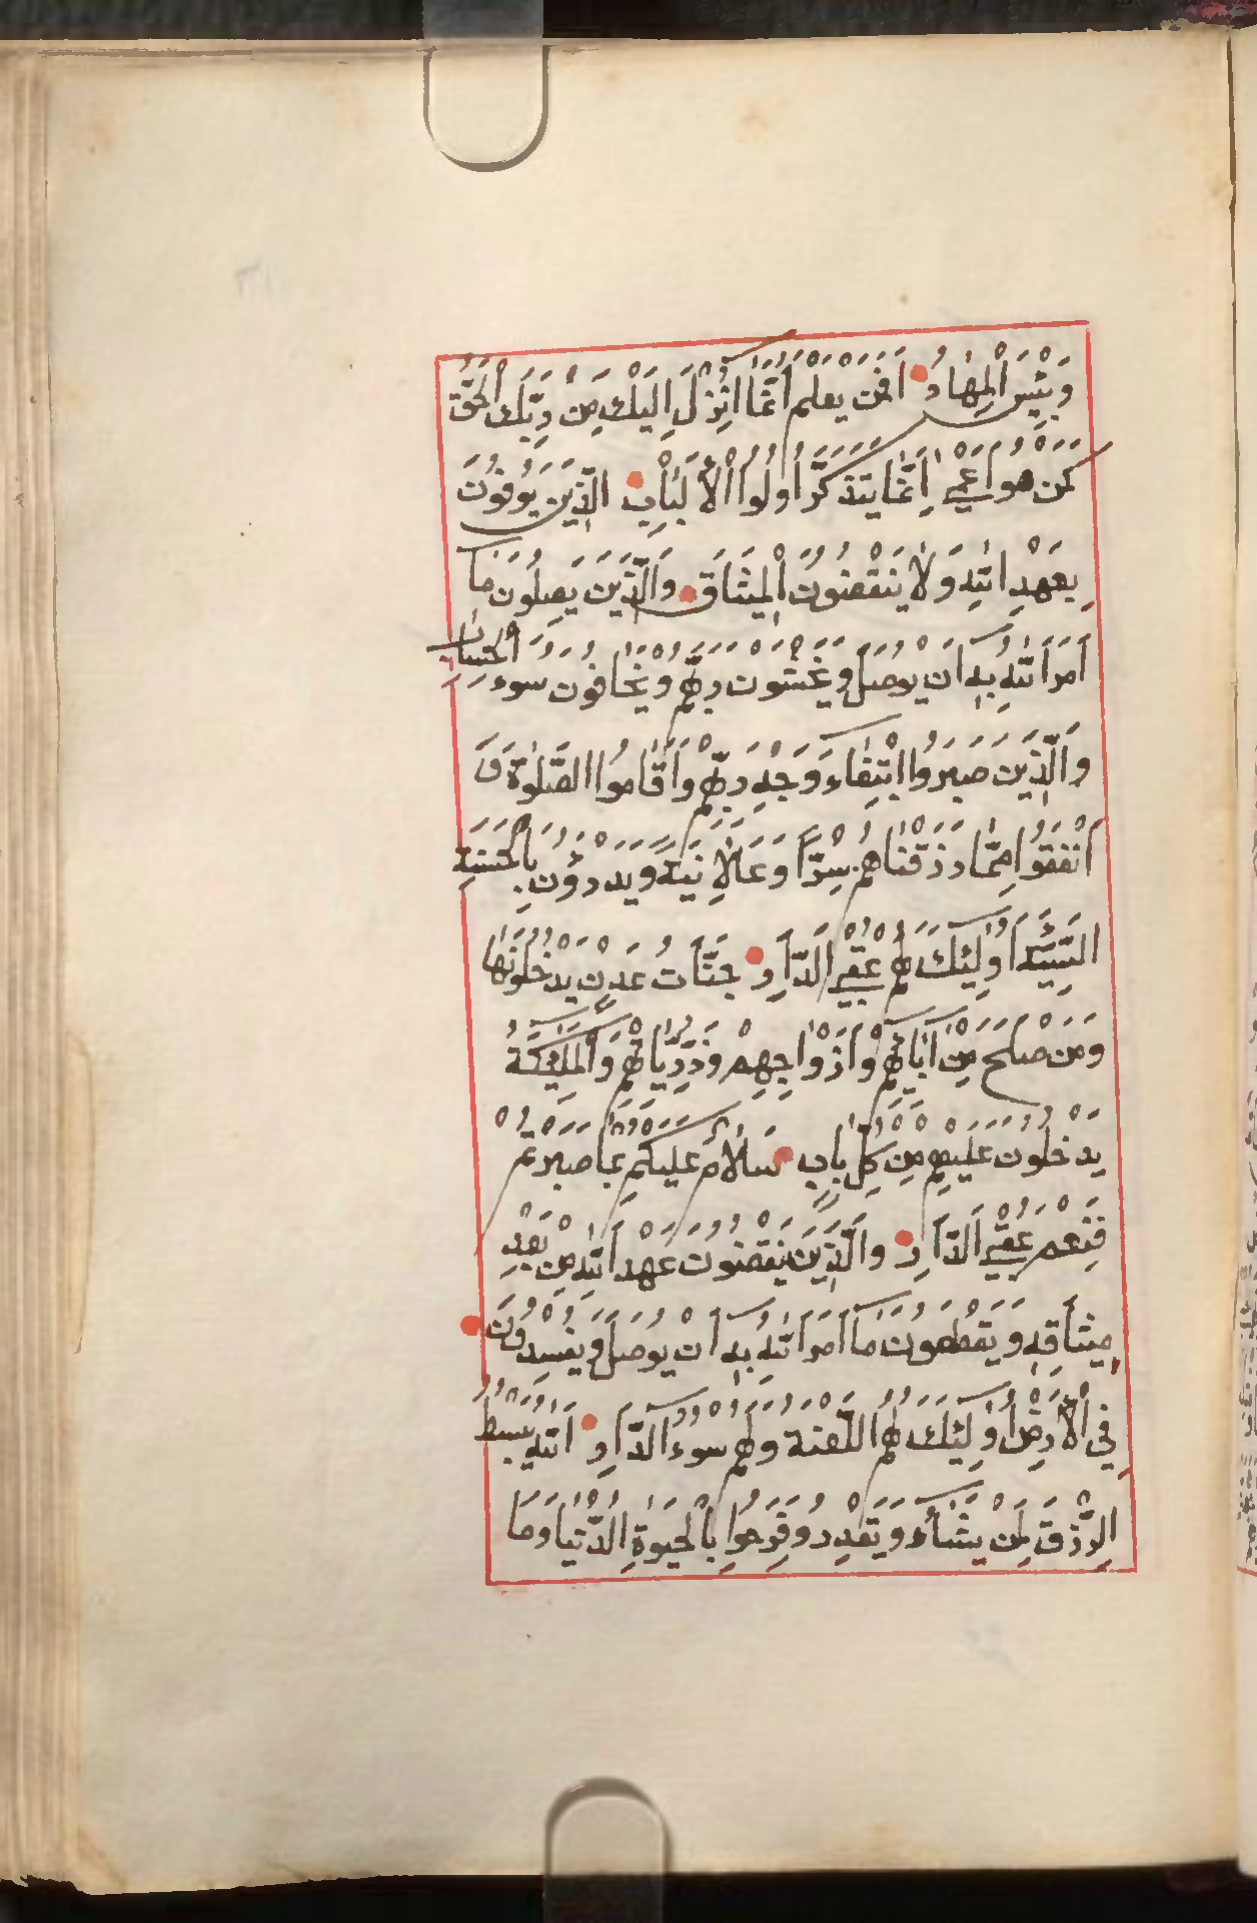 وَبِئْسَ الْمِهَادُ اَفَمَنْ يَعْلَمُ اَنَّمَا اُنْزِلَ اِلَيْكَ مِنْ رَبِّكَ الْحَقُّ
كَمَنْ هُوَ اَعْمٰى اِنَّمَا يَتَذَكَّرُ اُولُوا الْاَلْبَابِ الَّذِينَ يُوفُونَ
بِعَهْدِ اللّٰهِ وَلَا يَنْقُضُونَ الْمِيثَاقَ وَالَّذِينَ يَصِلُونَ مَا
اَمَرَ اللّٰهُ بِهِ اَنْ يُوصَلَ وَيَخْشَوْنَ رَبَّهُمْ وَيَخَافُونَ سُوءَ الْحِسَابِ
وَالَّذِينَ صَبَرُوا ابْتِغَاءَ وَجْهِ رَبِّهِمْ وَاَقَامُوا الصَّلٰوةَ وَ
اَنْفَقُوا مِمَّا رَزَقْنَاهُمْ سِرًّا وَعَلَانِيَةً وَيَدْرَؤُنَ بِالْحَسَنَةِ
السَّيِّئَةَ اُولٰئِكَ لَهُمْ عُقْبَى الدَّارِ جَنَّاتُ عَدْنٍ يَدْخُلُونَهَا
وَمَنْ صَلَحَ مِنْ اٰبَائِهِمْ وَاَزْوَاجِهِمْ وَذُرِّيَّاتِهِمْ وَالْمَلٰئِكَةُ
يَدْخُلُونَ عَلَيْهِمْ مِنْ كُلِّ بَابٍ سَلَامٌ عَلَيْكُمْ بِمَا صَبَرْتُمْ
فَنِعْمَ عُقْبَى الدَّارِ وَالَّذِينَ يَنْقُضُونَ عَهْدَ اللّٰهِ مِنْ بَعْدِ
مِيثَاقِهِ وَيَقْطَعُونَ مَا اَمَرَ اللّٰهُ بِهِ اَنْ يُوصَلَ وَيُفْسِدُونَ
فِي الْاَرْضِ اُولٰئِكَ لَهُمُ اللَّعْنَةُ وَلَهُمْ سُوءُ الدَّارِ اَللّٰهُ يَبْسُطُ
الرِّزْقَ لِمَنْ يَشَاءُ وَيَقْدِرُ وَفَرِحُوا بِالْحَيٰوةِ الدُّنْيَا وَمَا